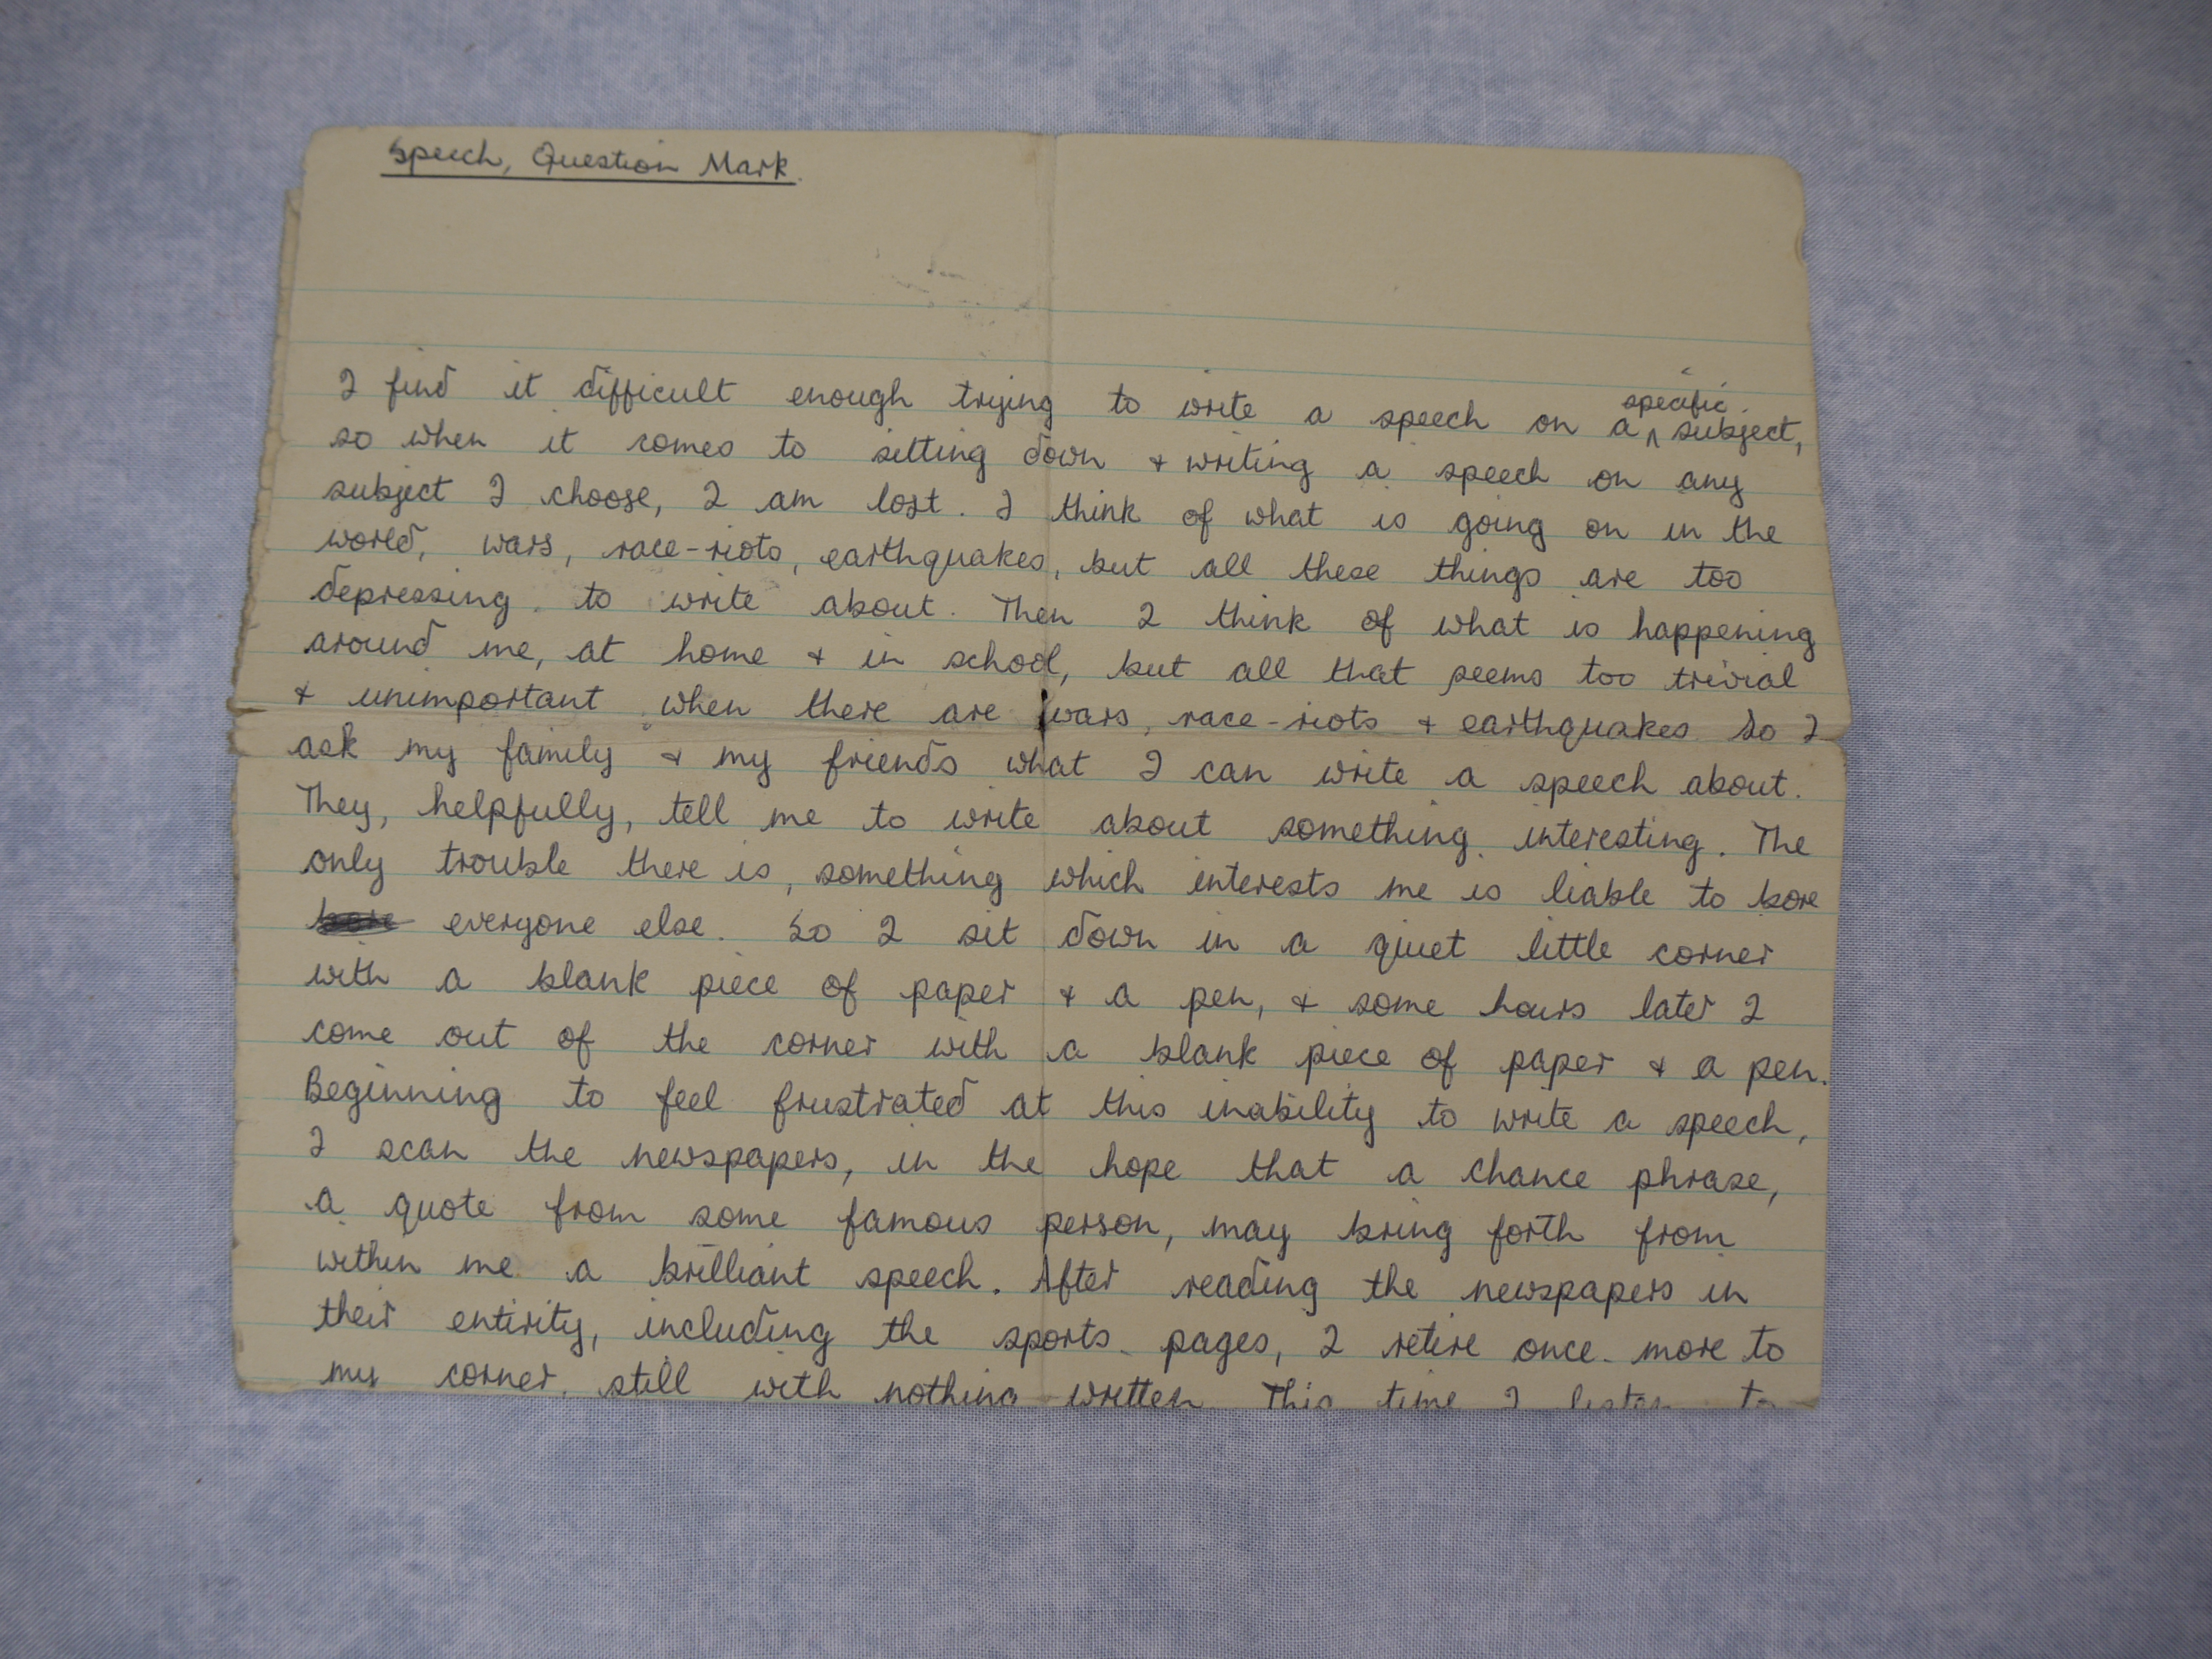 Speech, Question Mark.
I find it difficult enough trying to write a speech on a specific subject,
so when it comes to sitting down + writing a speech on any
subject I choose, I am lost. I think of what is going on in the
world, wars, race-riots, earthquakes, but all these things are too
depressing to write about. Then I think of what is happening
around me, at home + in school, but all that seems too trivial
+ unimportant when there are wars, race-riots + earthquakes. So I
ask my family + my friends what I can write a speech about.
They, helpfully, tell me to write about something interesting. The
only trouble there is, something which interests me is liable to bore
everyone else. So I sit down in a quiet little corner
with a blank piece of paper + a pen, + some hours later I
come out of the corner with a blank piece of paper + a pen.
Beginning to feel frustrated at this inability to write a speech,
I scan the newspapers, in the hope that a chance phrase,
a quote from some famous person, may bring forth from
within me a brilliant speech. After reading the newspapers in
their entirity, including the sports pages, I retire once more to
my corner, still with nothing written. This time I listen to